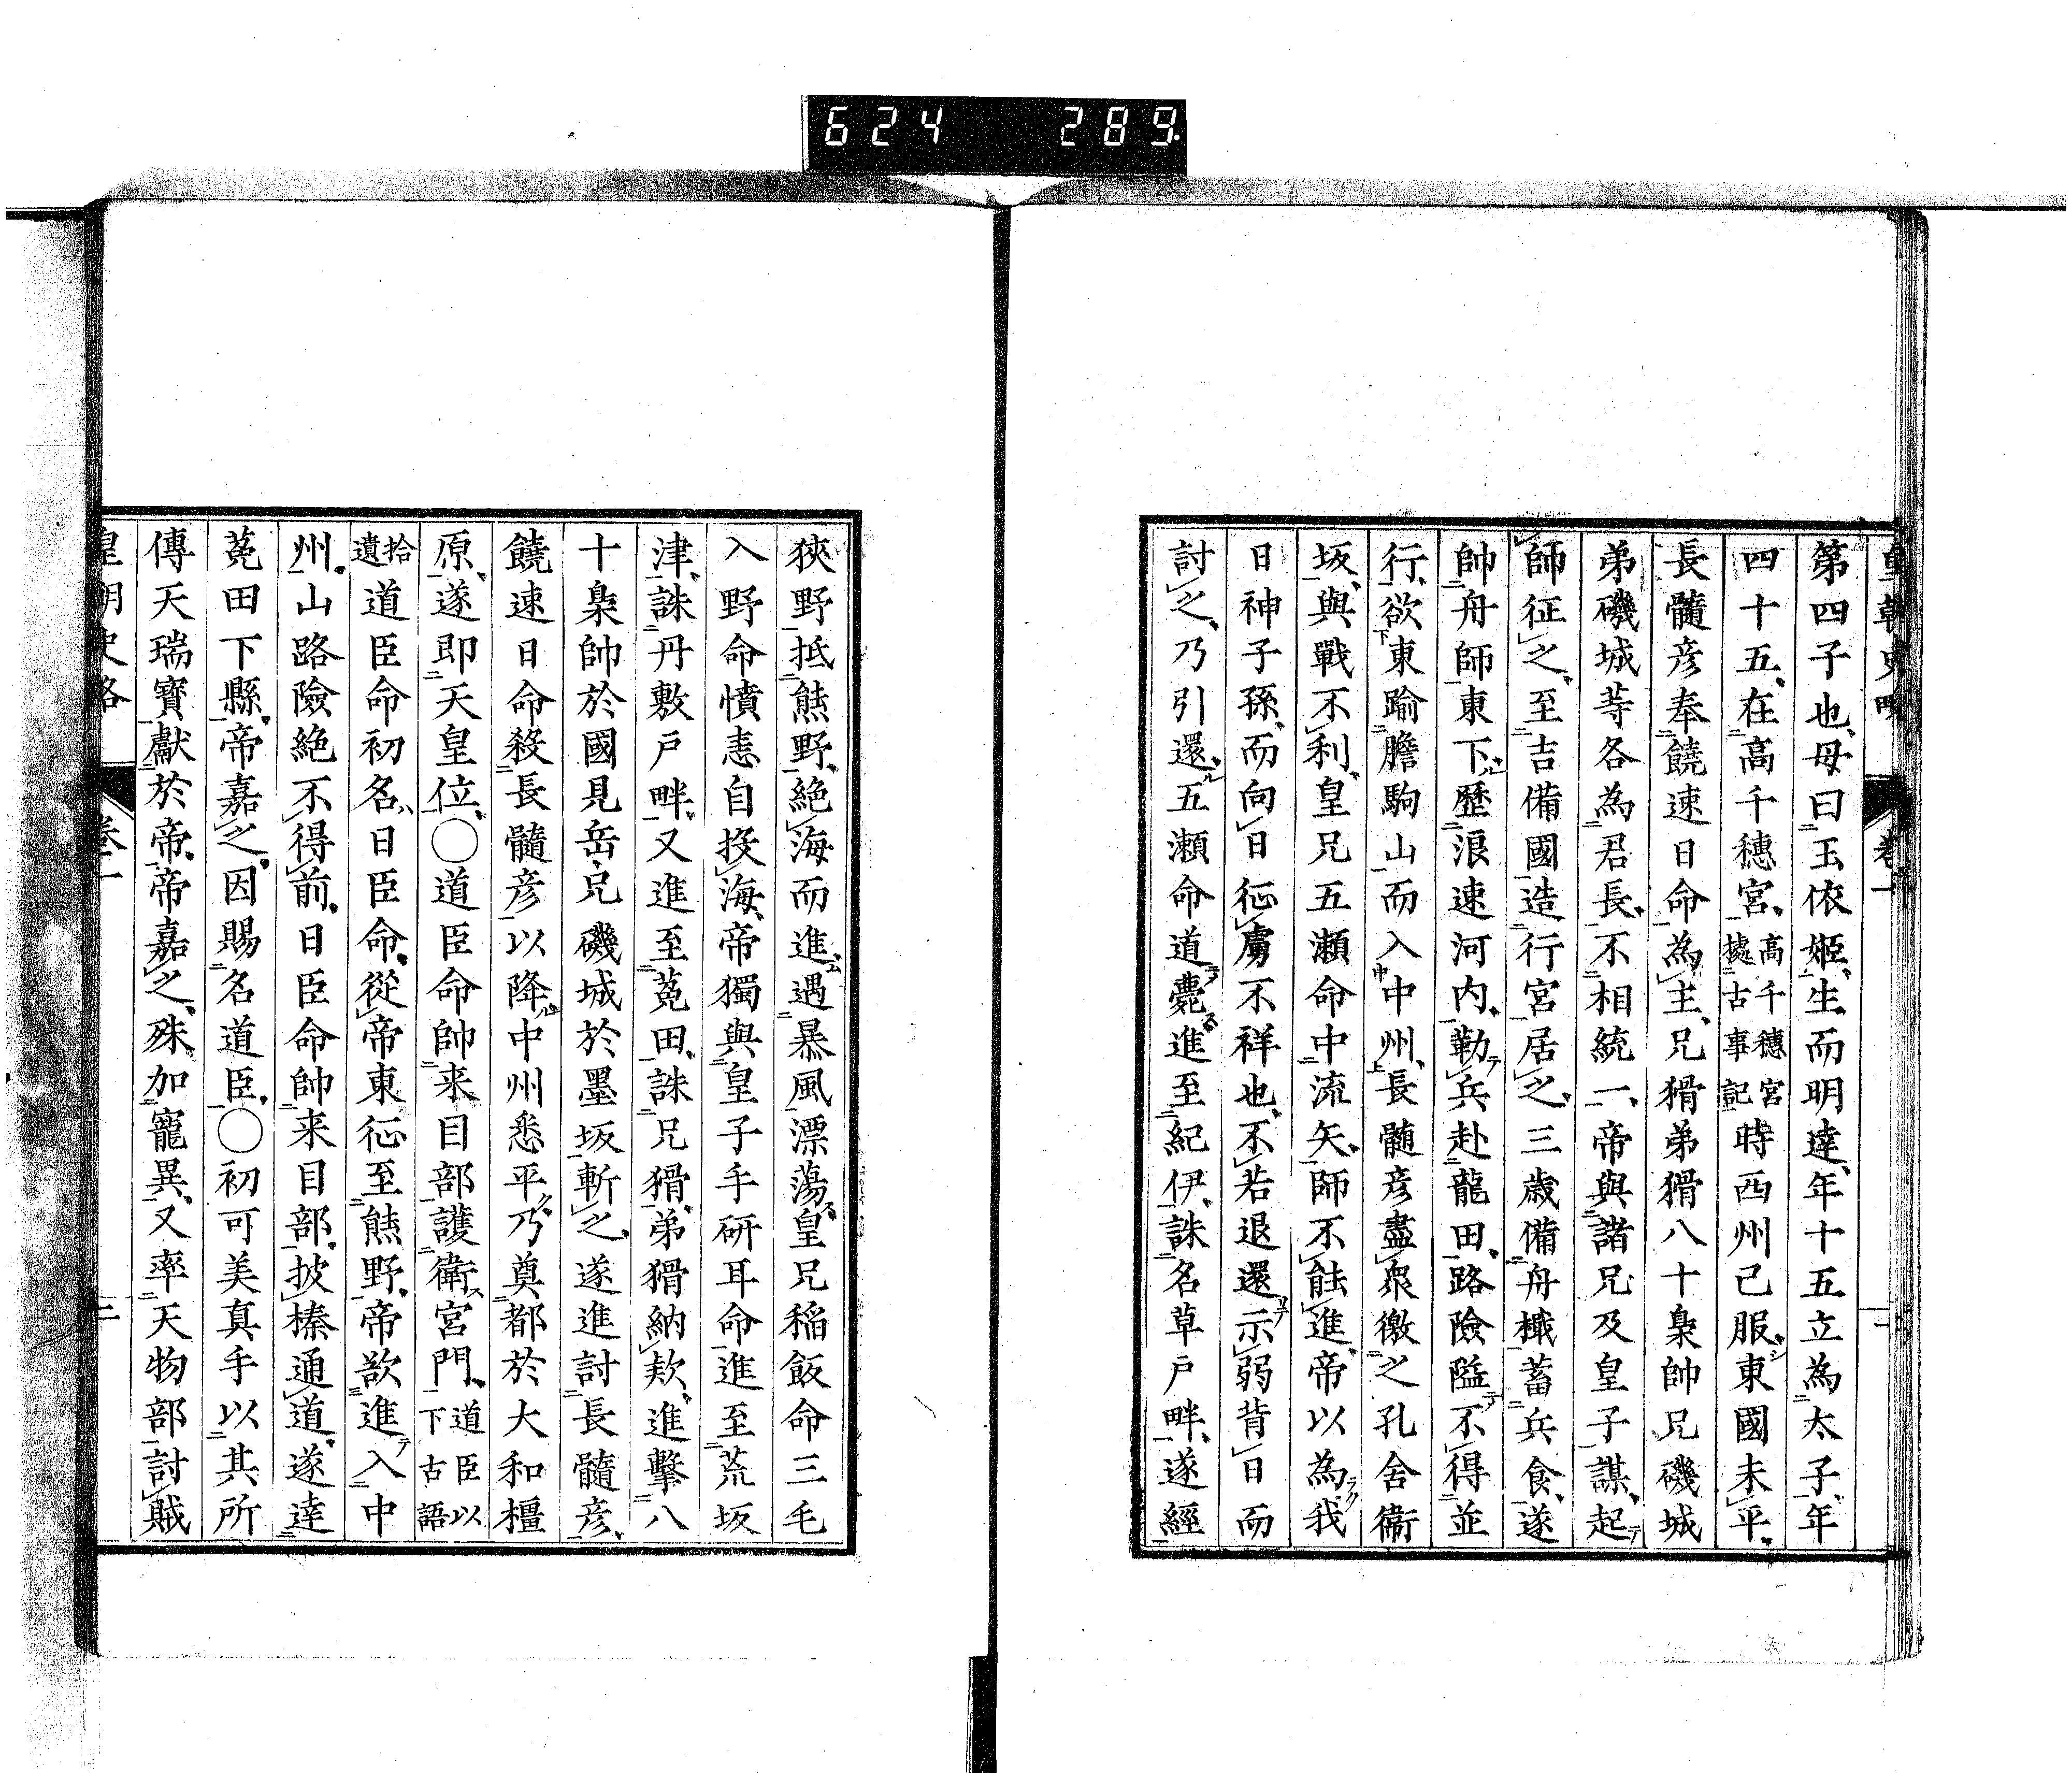 624 289.
皇朝史略 卷一
第四子也、母曰玉依姬、生而明達、年十五立為太子、年
四十五、在高千穗宮、高千穗宮據古事記時西州已服、東國未平、
長髓彦奉饒速日命為主、兄猾弟猾八十梟帥兄磯城
弟磯城等各為君長、不相統一、帝與諸兄及皇子謀、起
師征之、至吉備國造行宮居之、三歲備舟檝蓄兵食、遂
帥舟師東下、歷浪速河內、勒兵赴龍田、路險隘不得並
行、欲東踰膽駒山而入中州、長髓彦盡衆徼之孔舍衞
坂、與戰不利、皇兄五瀨命中流矢、師不能進、帝以為我
日神子孫、而向日征虜不祥也、不若退還示弱背日而
討之、乃引還、五瀨命道薨進至紀伊、誅名草戸畔、遂經
狹野抵熊野、絶海而進、遇暴風漂蕩、皇兄稲飯命三毛
入野命憤恚自投海、帝獨與皇子手研耳命進至荒坂
津、誅丹敷戸畔、又進至菟田、誅兄猾、弟猾納欵、進擊八
十梟帥於國見岳、兄磯城於墨坂斬之、遂進討長髓彦、
饒速日命殺長髓彦以降、中州悉平、乃奠都於大和橿
原、遂即天皇位、〇道臣命帥来目部護衛宮門、道臣以下古語
拾遺道臣命初名、日臣命、從帝東征至熊野、帝欲進入中
州、山路險絶不得前、日臣命帥来目部、披榛通道、遂達
菟田下縣、帝嘉之、因賜名道臣、〇初可美真手以其所
傳天瑞寶獻於帝、帝嘉之、殊加寵異、又率天物部討賊
皇朝史略 卷一 二